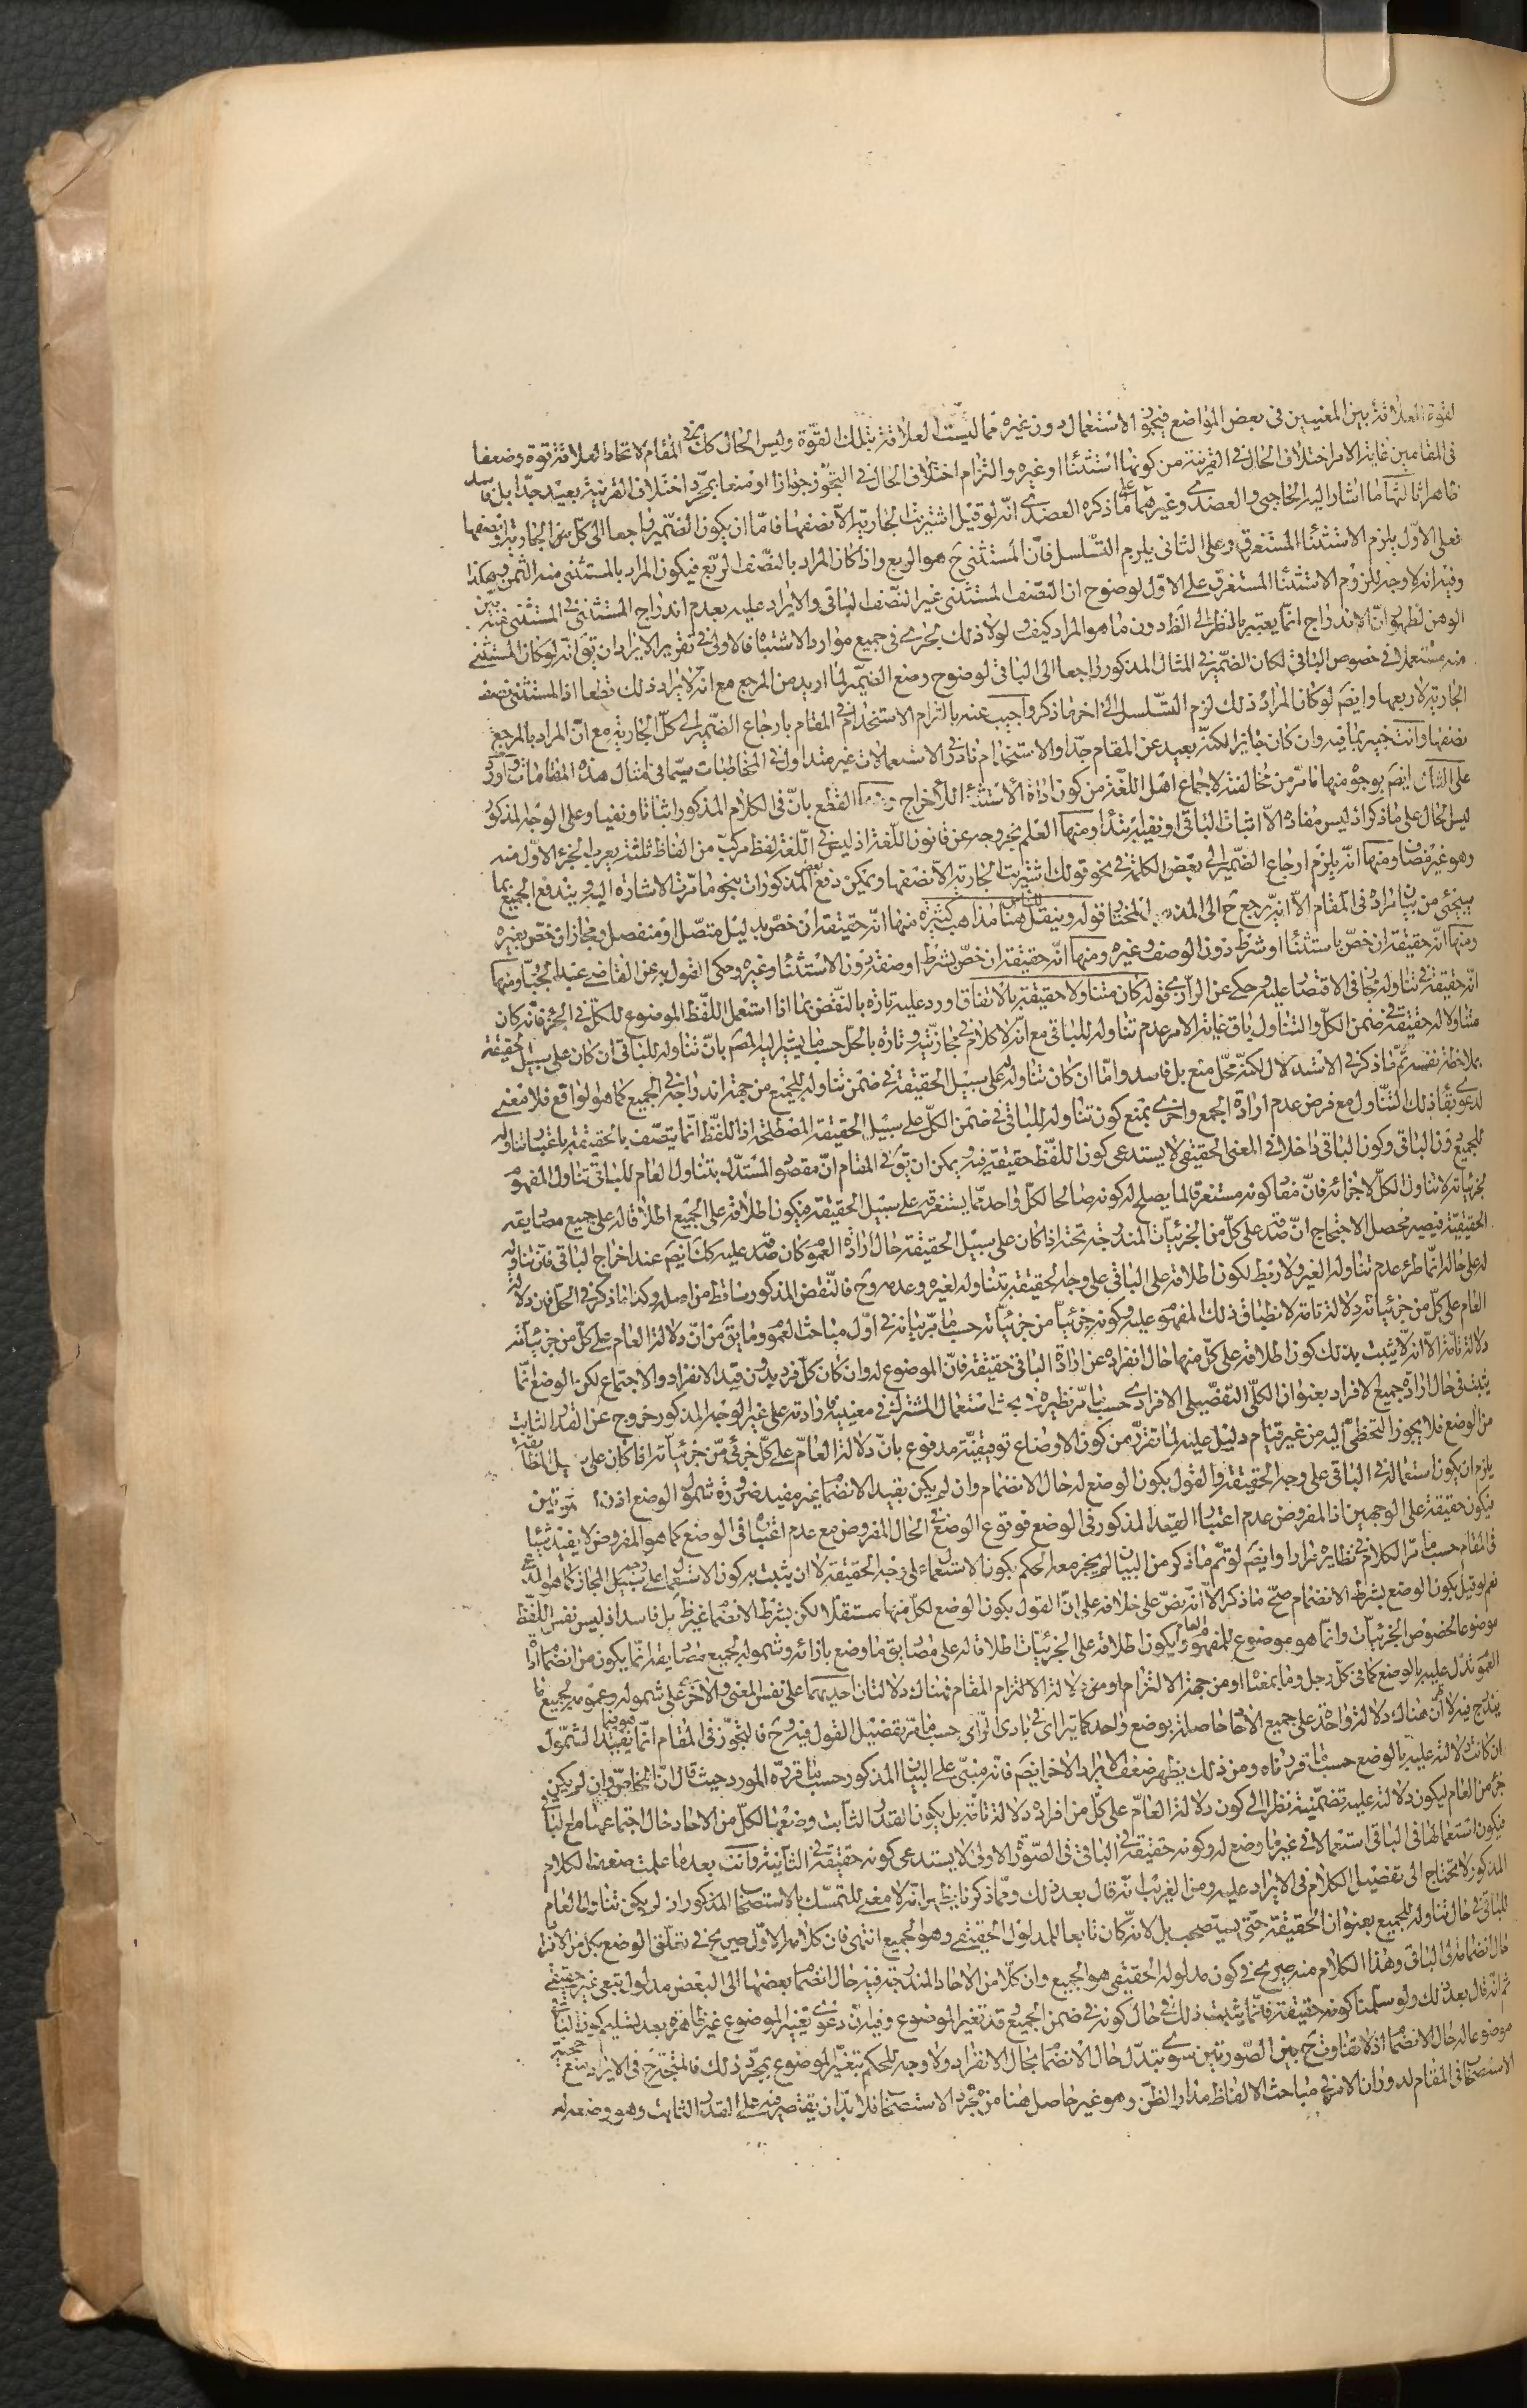 لقوة العلاقة بين المعنيين فى بعض المواضع فيجوز الاستعمال دون غيره مما ليست العلاقة بتلك القوة وليس الحال كك فى المقام لاتحاد العلاقة قوة وضعفا
فى المقامين غاية الامر اختلاف الحال فى القرينة من كونها استثناء او غيره والتزام اختلاف الحال فى التجوز جوازا او منعا بمجرد اختلاف القرينة بعيد جدا بل فاسد
ظاهرا ثالثها ما اشار اليه الحاجبى والعضدى وغيرهما على ما ذكره العضدى انه لو قيل اشتريت الجارية الا نصفها فاما ان يكون الضمير راجعا الى كل من الجارية او نصفها
فعلى الاول يلزم الاستثناء المستغرق وعلى الثانى يلزم التسلسل فان المستثنى ح هو الربع واذا كان المراد بالنصف الربع فيكون المراد بالمستثنى منه الثمن وهكذا
وفيه انه لا وجه للزوم الاستثناء المستغرق على الاول لوضوح ان النصف المستثنى غير النصف الباقى والايراد عليه بعدم اندراج المستثنى فى المستثنى منه بين
الوهن لظهور ان الاندراج انما يعتبر بالنظر الى الظ دون ما هو المراد كيف ولولا ذلك لجرى فى جميع موارد الاشتباه فالاولى فى تقرير الايراد ان يق انه لو كان المستثنى
منه مستعملا فى خصوص الباقى لكان الضمير فى المثال المذكور راجعا الى الباقى لوضوح وضع الضمير لما اريد من المرجع مع انه لا يراد ذلك قطعا اذ المستثنى نصف
الجارية لا ربعها وايضم لو كان المراد ذلك لزم التسلسل الى اخر ما ذكر واجيب عنه بالتزام الاستخدام فى المقام بارجاع الضمير الى كل الجارية مع ان المراد بالمرجع
نصفها وانت خبير بما فيه وان كان جايزا لكنه بعيد عن المقام جدا والاستخدام نادر فى الاستعمالات غير متداول فى المخاطبات سيما فى امثال هذه المقامات واورد
على الثانى ايضم بوجوه منها ما مر من مخالفته لاجماع اهل اللغة من كون اداة الاستثناء للاخراج ومنها القطع بان فى الكلام المذكور اثباتا ونفيا وعلى الوجه المذكور
ليس الحال على ما ذكر اذ ليس مفاده الا اثبات الباقى او نفيه ابتداء ومنها العلم بخروجه عن قانون اللغة اذ ليس فى اللغة لفظ مركب من الفاظ ثلثة يعرب الجزء الاول منه
وهو غير مضاف ومنها انه يلزم ارجاع الضمير الى بعض الكلمة فى نحو قولك اشتريت الجارية الا نصفها ويمكن دفع بعض المذكورات بنحو ما مرت الاشارة اليه ويندفع الجميع بما
سيجئ من بيان مراده فى المقام الا انه يرجع ح الى المذهب المختار قوله وينقل هنا للناس مذاهب كثيرة منها انه حقيقة ان خص بدليل متصل او منفصل ومجاز ان خص بغيره
ومنها انه حقيقة ان خص باستثناء او شرط دون الوصف وغيره ومنها انه حقيقة ان خص بشرط او صفة دون الاستثناء وغيره وحكى القول به عن القاضى عبد الجبار ومنها
انه حقيقة فى تناوله مجاز فى الاقتصار عليه وحكى عن الرازى قوله كان متناولا حقيقة بالاتفاق اورد عليه تارة بالنقض بما اذا استعمل اللفظ الموضوع للكل فى الجزء فانه كان
متناولا له حقيقة فى ضمن الكل والتناول باق غاية الامر عدم تناوله للباقى مع انه لا كلام فى مجازيته وتارة بالحل حسب ما يشير اليه المصم بان تناوله للباقى ان كان على سبيل الحقيقة
بملاحظة نفسه تم ما ذكر فى الاستدلال لكنه محل منع بل فاسد واما ان كان تناوله له على سبيل الحقيقة فى ضمن تناوله للجميع من جهة اندراجه فى الجميع كما هو الواقع فلا معنى
لدعوى بقاء ذلك التناول مع فرض عدم ارادة الجميع واخرى بمنع كون تناوله للباقى فى ضمن الكل على سبيل الحقيقة المصطلحة اذ اللفظ انما يتصف بالحقيقة باعتبار تناوله
للجميع دون الباقى وكون الباقى داخلا فى المعنى الحقيقى لا يستدعى كون اللفظ حقيقة فيه ويمكن ان يق فى المقام ان مقصود المستدل بتناول العام للباقى تناول المفهوم
لجزئياته لا تناول الكل لاجزائه فان مفاد كونه مستغرقا لما يصلح له كونه صالحا لكل واحد مما يستغرقه على سبيل الحقيقة فيكون اطلاقه على الجميع اطلاقا له على جميع مصاديقه
الحقيقية فيصير محصل الاحتجاج ان صدقه على كل من الجزئيات المندرجة تحته اذا كان على سبيل الحقيقة حال ارادة العموم كان صدقه عليه كك ايضم عند اخراج الباقى فان تناوله
له على حاله انما طرء عدم تناوله الغير ولا ربط لكون اطلاقه على الباقى على وجه الحقيقة بتناوله لغيره وعدمه وح فالنقض المذكور ساقط من اصله وكذا ما ذكر فى الحل فان دلالة
العام على كل من جزئياته دلالة تامة لانطباق ذلك المفهوم عليه وكونه جزئيا من جزئياته حسب ما مر بيانه فى اول مباحث العموم وما يق من ان دلالة العام على كل من جزئياته
دلالة تامة الا انه لا يثبت بذلك كون اطلاقه على كل منها حال انفراده عن ارادة الباقى حقيقة فان الموضوع له وان كان كل فرد بدون قيد الانفراد والاجتماع لكن الوضع انما
يثبت فى حال ارادة جميع الافراد بعنوان الكلى التفصيلى الافرادى حسب ما مر نظيره فى بحث استعمال المشترك فى معنييه فارادته على غير الوجه المذكور خروج عن القدر الثابت
من الوضع فلا يجوز التخطى اليه من غير قيام دليل عليه لما تقرر من كون الاوضاع توقيفية مدفوع بان دلالة العام على كل جزئى من جزئياته اذا كان على سبيل المطابقة
يلزم ان يكون استعماله فى الباقى على وجه الحقيقة والقول بكون الوضع له حال الانضمام وان لم يكن بقيد الانضمام غير مفيد ضرورة شمول الوضع اذن للصورتين
فيكون حقيقة على الوجهين اذ المفروض عدم اعتبار القيد المذكور فى الوضع فوقوع الوضع فى الحال المفروض مع عدم اعتباره فى الوضع كما هو المفروض لا يفيد شيئا
فى المقام حسب ما مر الكلام فى نظايره مرارا وايضم لو تم ما ذكر من البيان لم يجز معه الحكم بكون الاستعمال على وجه الحقيقة لا ان يثبت به كون الاستعمال على سبيل المجاز كما هو المدعى
نعم لو قيل بكون الوضع بشرط الانضمام صح ما ذكر الا انه نص على خلافه على ان القول بكون الوضع لكل منها مستقلا لكن بشرط الانضمام غير ظ بل فاسد اذ ليس نفس اللفظ
موضوعا لخصوص الجزئيات وانما هو موضوع للمفهوم العام ويكون اطلاقه على الجزئيات اطلاقا له على مصاديق ما وضع بازائه وشموله لجميع مصاديقه انما يكون من انضمام اداة
العموم تدل عليه بالوضع كما فى كل رجل وما بمعناه او من جهة الالتزام او من دلالة الالتزام المقام فهناك دلالتان احديهما على نفس المعنى والاخرى على شموله وعمومه لجميع ما
يندرج فيه لا ان هناك دلالة واحدة على جميع الاحاد حاصلة بوضع واحد كما يترااى فى بادى الراى حسب ما مر تفصيل القول فيه وح فالتجوز فى المقام انما هو فيما يفيد الشمول
ان كانت دلالته عليه بالوضع حسب ما قررناه ومن ذلك يظهر ضعف الايراد الاخر ايضم فانه مبنى على البيان المذكور حسب ما قرره المورد حيث قال ان الخاص وان لم يكن
جزء من العام ليكون دلالته عليه تضمنية نظرا الى كون دلالة العام على كل من افراده دلالة تامة بل يكون القدر الثابت وضعها لكل من الاحاد حال اجتماعها مع الباقى
فيكون استعمالها فى الباقى استعمالا فى غير ما وضع له وكونه حقيقة فى الباقى فى الصورة الاولى لا يستدعى كونه حقيقة فى الثانية وانت بعد ما علمت ضعف الكلام
المذكور لا تحتاج الى تفصيل الكلام فى الايراد عليه ومن الغريب انه قال بعد ذلك ومما ذكرنا يظهر انه لا معنى للتمسك بالاستصحاب المذكور اذ لم يكن تناول العام
للباقى فى حال تناوله للجميع بعنوان الحقيقة حتى يستصحب بل لانه كان تابعا للمدلول الحقيقى وهو الجميع انتهى فان كلامه الاول صريح فى تعلق الوضع بكل من الافراد
حال انضمامه الى الباقى وهذا الكلام منه صريح فى كون مدلوله الحقيقى هو الجميع وان كلا من الاحاد المندرجة فيه حال انضمام بعضها الى البعض مدلول تبعى غير حقيقى
ثم انه قال بعد ذلك ولو سلمنا كونه حقيقة فانما يثبت ذلك فى حال كونه فى ضمن الجميع وقد تغير الموضوع وفيه ان دعوى تغير الموضوع غير ظاهرة بعد تسليم كون الباقى
موضوعا له حال الانضمام اذ لا تفاوت ح بين الصورتين سوى تبدل حال الانضمام بحال الانفراد ولا وجه للحكم بتغير الموضوع بمجرد ذلك فالمتجه ح فى الايراد منع حجية
الاستصحاب فى المقام لدوران الامر فى مباحث الالفاظ مدار الظن وهو غير حاصل هنا من مجرد الاستصحاب فلا بد ان يقتصر فيه على القدر الثابت وهو وضعه له